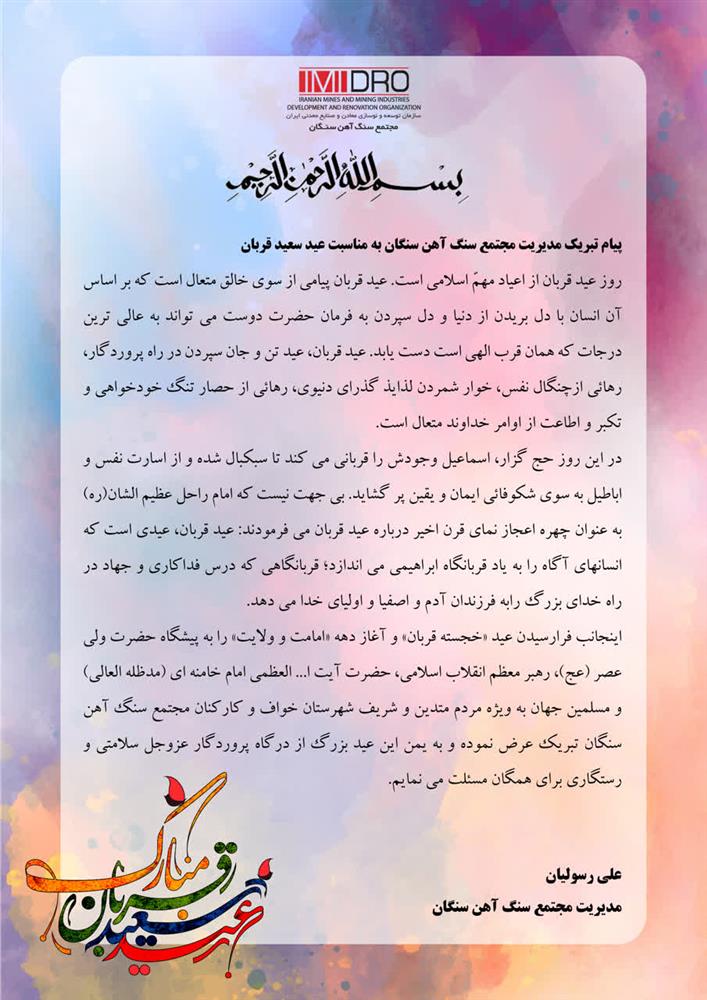 IMIDRO
IRANIAN MINES AND MINING INDUSTRIES
DEVELOPMENT AND RENOVATION ORGANIZATION
سازمان توسعه و نوسازی معادن و صنایع معدنی ایران
مجتمع سنگ آهن سنگان
بسم الله الرحمن الرحیم
پیام تبریک مدیریت مجتمع سنگ آهن سنگان به مناسبت عید سعید قربان
روز عید قربان از اعیاد مهمّ اسلامی است. عید قربان پیامی از سوی خالق متعال است که بر اساس
آن انسان با دل بریدن از دنیا و دل سپردن به فرمان حضرت دوست می تواند به عالی ترین
درجات که همان قرب الهی است دست یابد. عید قربان، عید تن و جان سپردن در راه پروردگار،
رهائی ازچنگال نفس، خوار شمردن لذایذ گذرای دنیوی، رهائی از حصار تنگ خودخواهی و
تکبر و اطاعت از اوامر خداوند متعال است.
در این روز حج گزار، اسماعیل وجودش را قربانی می کند تا سبکبال شده و از اسارت نفس و
اباطیل به سوی شکوفائی ایمان و یقین پر گشاید. بی جهت نیست که امام راحل عظیم الشان(ره)
به عنوان چهره اعجاز نمای قرن اخیر درباره عید قربان می فرمودند: عید قربان، عیدی است که
انسانهای آگاه را به یاد قربانگاه ابراهیمی می اندازد؛ قربانگاهی که درس فداکاری و جهاد در
راه خدای بزرگ رابه فرزندان آدم و اصفیا و اولیای خدا می دهد.
اینجانب فرارسیدن عید «خجسته قربان» و آغاز دهه «امامت و ولایت» را به پیشگاه حضرت ولی
عصر (عج)، رهبر معظم انقلاب اسلامی، حضرت آیت ا... العظمی امام خامنه ای (مدظله العالی)
و مسلمین جهان به ویژه مردم متدین و شریف شهرستان خواف و کارکنان مجتمع سنگ آهن
سنگان تبریک عرض نموده و به یمن این عید بزرگ از درگاه پروردگار عزوجل سلامتی و
رستگاری برای همگان مسئلت می نمایم.
علی رسولیان
مدیریت مجتمع سنگ آهن سنگان
عید سعید قربان مبارک